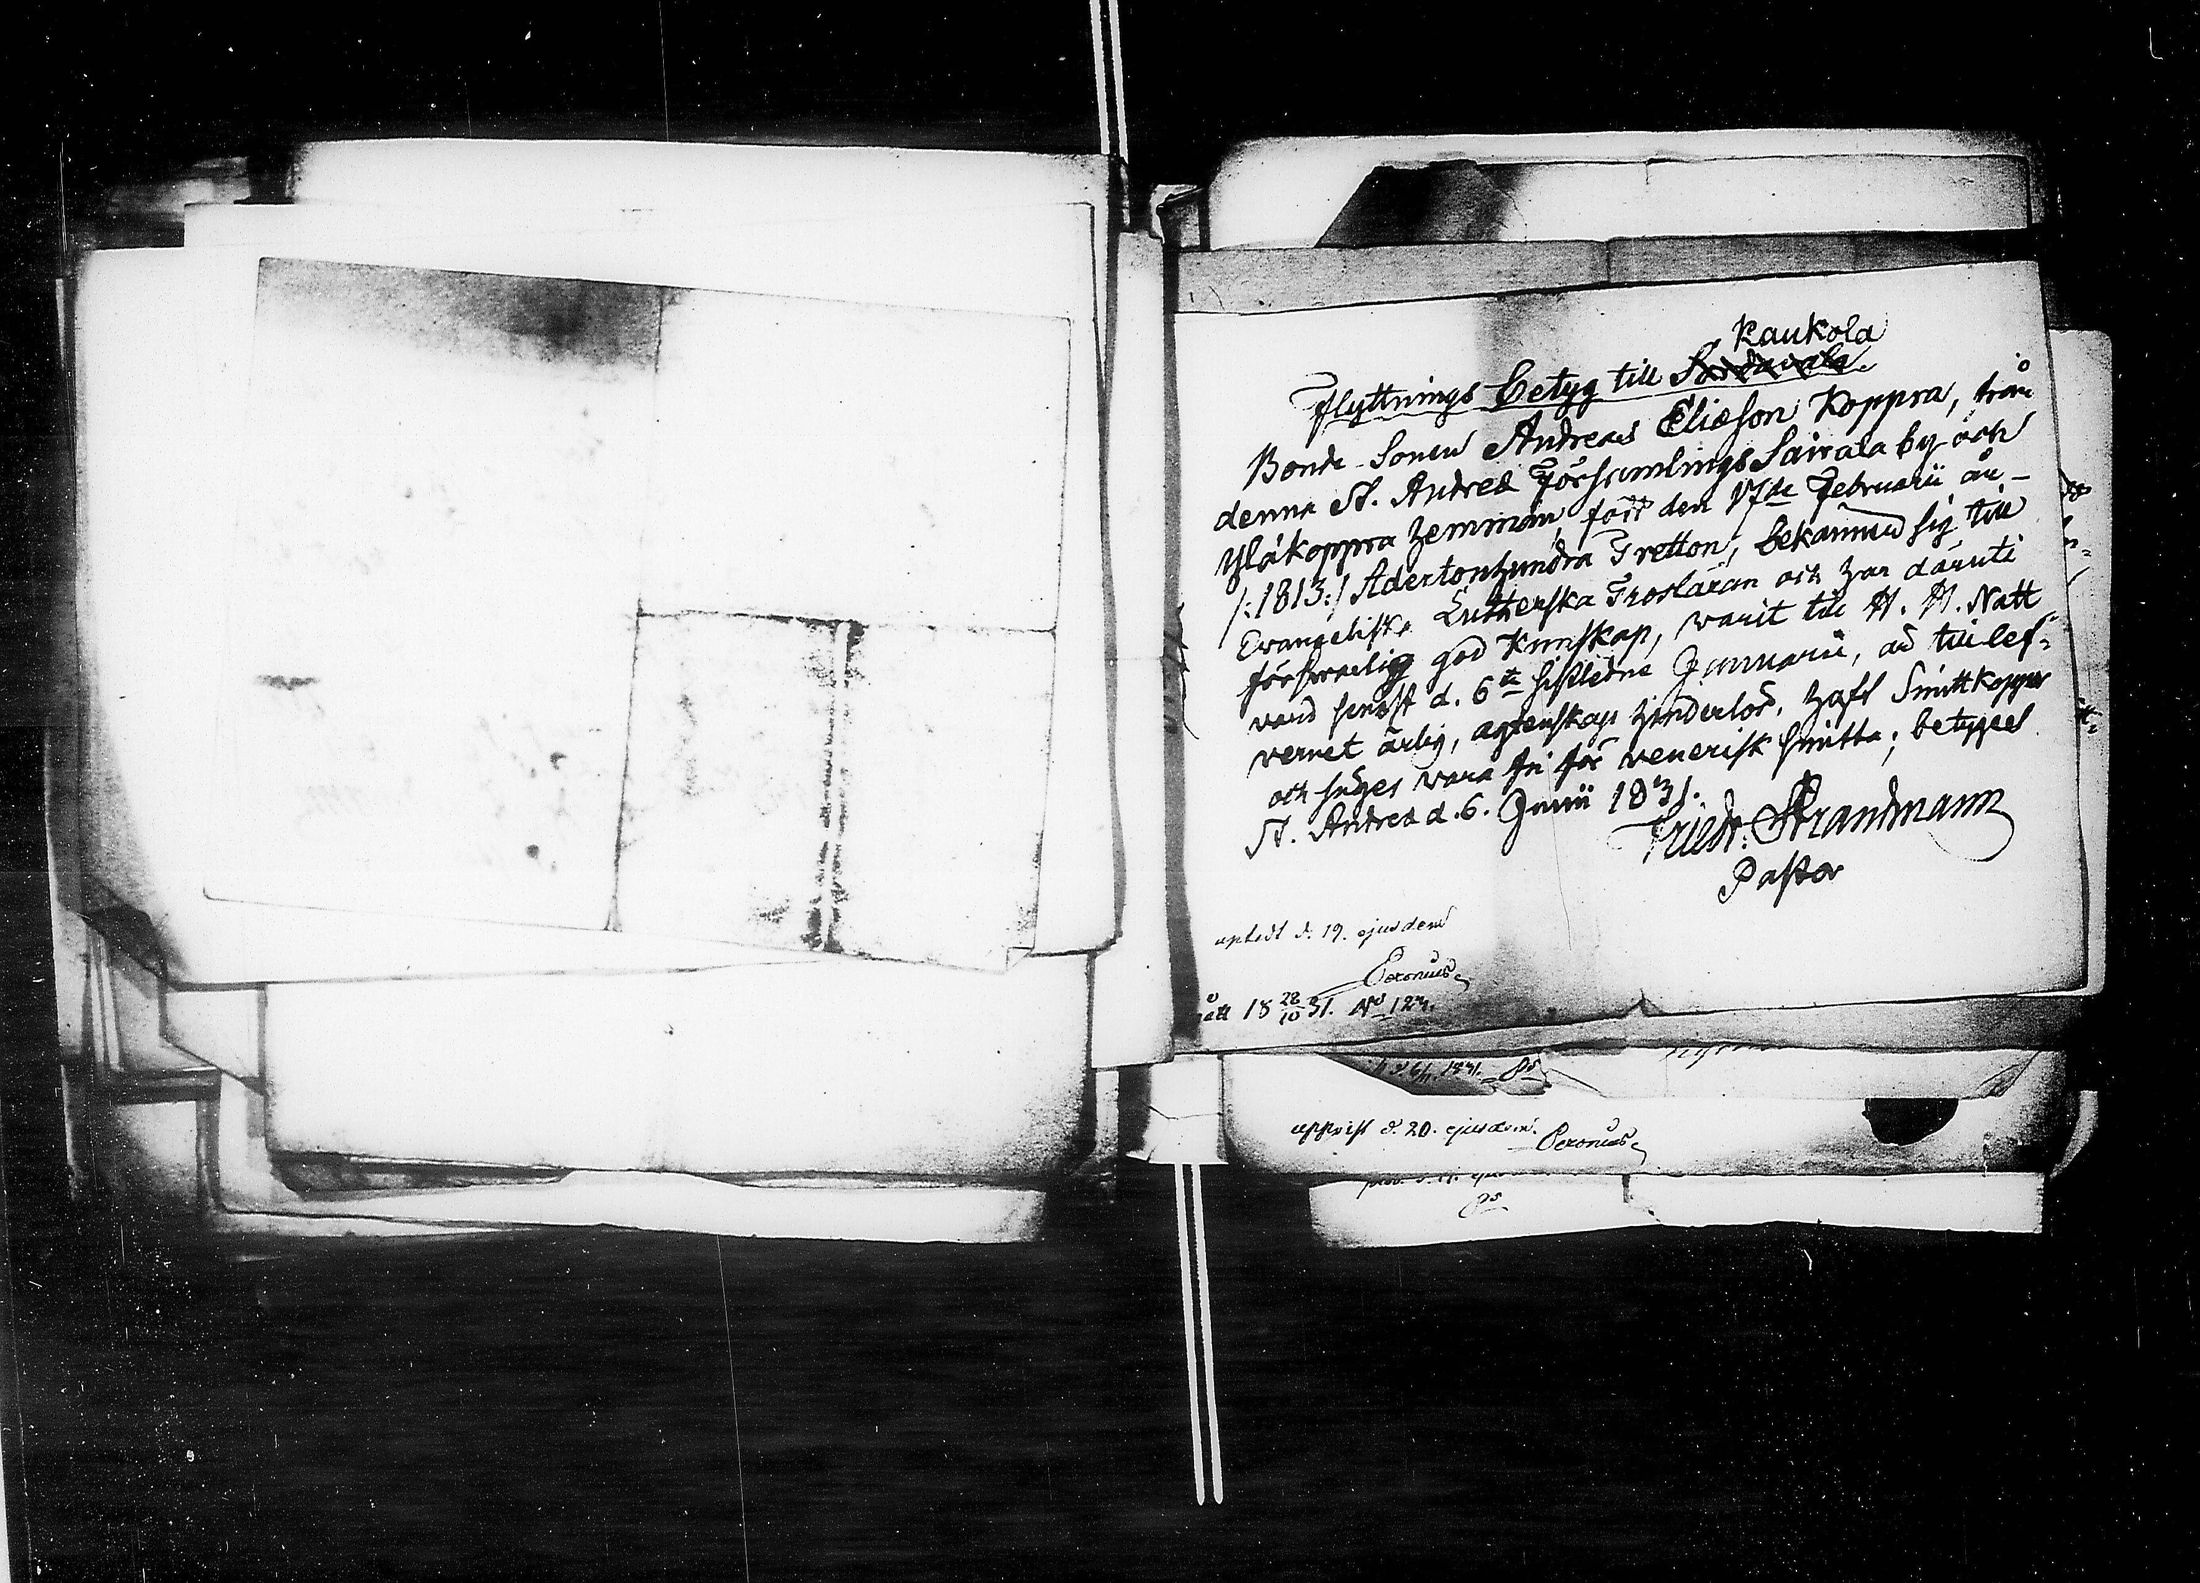 Kaukola
Flyttnings Betyg till Sordavala
Bonde-Sonen Andreas Eliæson Koppra, från
denna St. Andreæ Församlings Sairala by och
Yläkoppra hemman, född den 17de Februarii år
/:1813:/ Adertonhundra Tretton, bekänner sig till
Evangelisk Lutherska Trosläran och har däruti
försvarlig god kunskap, warit till H. H. Natt
vard senast d. 6te sistledne Januarii, är till lef-
vernet ärlig, agtenskaps hinderlös, haft Smittkoppor
och säges vara fri för venerisk smitta; betygas
St. Andreæ d. 6. Junii 1831.
Friedr. Strandmann
Pastor
upläst d. 19. ejusdem
Peronius
18 28/10 31. No 123.
1831. Ps
uppvist d. 20. ejusdem.
Peronius
Ps